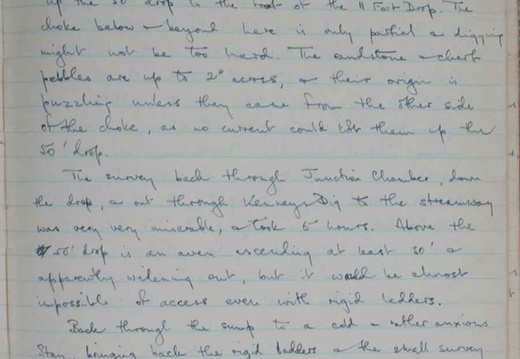 up the 50' drop to the foot of the 11 Foot Drop. The
choke below & beyond here is only partial & digging
might not be too hard. The sandstone & chert
pebbles are up to 2" across, & their origin is
puzzling unless they came from the other side
of the choke, as no current could lift them up the
50' drop.
The survey back through Junction Chamber, down
the drop, & out through Kenneys Dig to the streamway
was very very miserable, & took 5 hours. Above the
50' drop is an aven ascending at least 50' &
apparently widening out, but it would be almost
impossible of access even with rigid ladders.
Back through the sump to a cold & rather anxious
Stan, bringing back the rigid ladders & the small survey